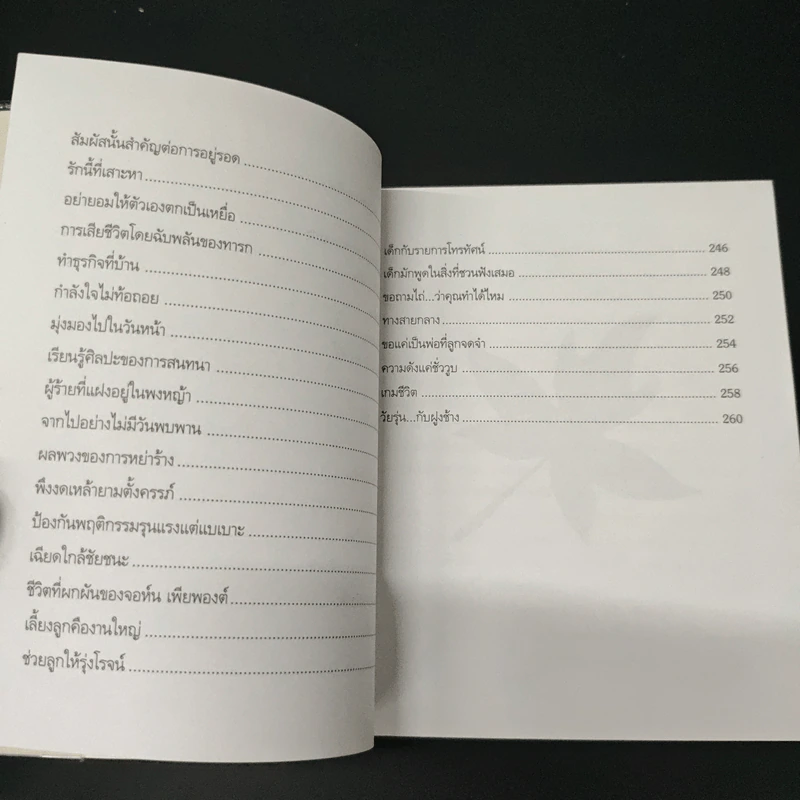 สัมผัสนั้นสำคัญต่อการอยู่รอด
รักนี้ที่เสาะหา
อย่ายอมให้ตัวเองตกเป็นเหยื่อ
การเสียชีวิตโดยฉับพลันของทารก
ทำธุรกิจที่บ้าน
กำลังใจไม่ท้อถอย
มุ่งมองไปในวันหน้า
เรียนรู้ศิลปะของการสนทนา
ผู้ร้ายที่แฝงอยู่ในพงหญ้า
จากไปอย่างไม่มีวันพบพาน
ผลพวงของการหย่าร้าง
พึงงดเหล้ายามตั้งครรภ์
ป้องกันพฤติกรรมรุนแรงแต่แบเบาะ
เฉียดใกล้ชัยชนะ
ชีวิตที่ผกผันของจอห์น เพียพองต์
เลี้ยงลูกคืองานใหญ่
ช่วยลูกให้รุ่งโรจน์
เด็กกับรายการโทรทัศน์ 246
เด็กมักพูดในสิ่งที่ชวนฟังเสมอ 248
ขอถามไถ่...ว่าคุณทำได้ไหม 250
ทางสายกลาง 252
ขอแค่เป็นพ่อที่ลูกจดจำ 254
ความดังแค่ชั่ววูบ 256
เกมชีวิต 258
วัยรุ่น...กับฝูงช้าง 260